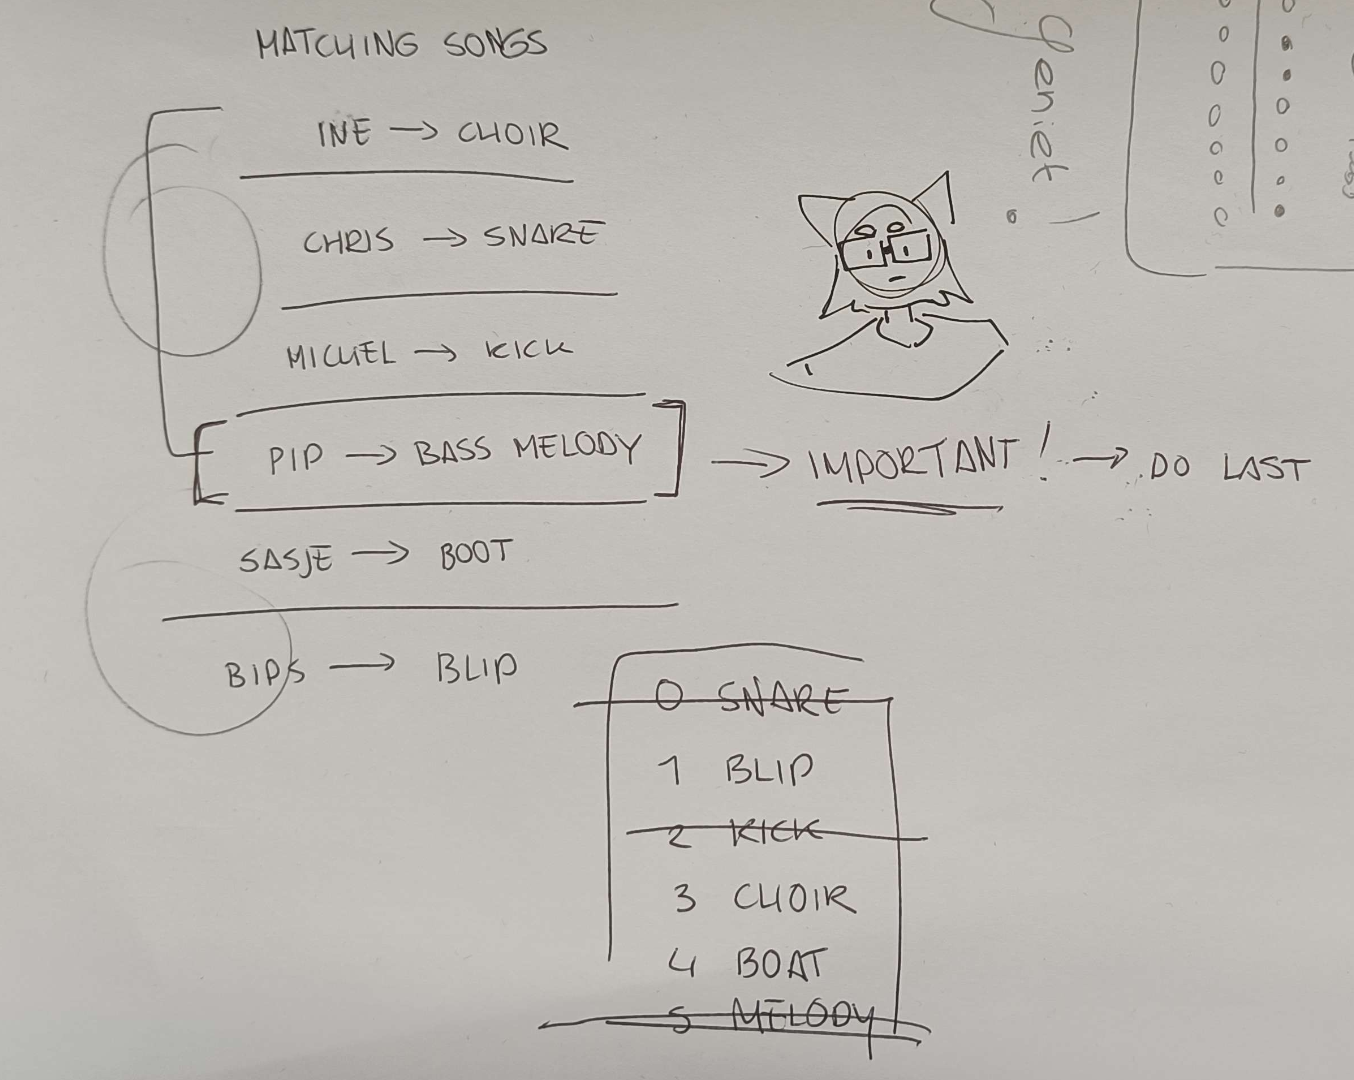 MATCHING SONGS
INE → CHOIR
CHRIS → SNARE
MICHEL → KICK
PIP → BASS MELODY → IMPORTANT! → DO LAST
SASJE → BOOT
BIPS → BLIP
0 SNARE
1 BLIP
2 KICK
3 CHOIR
4 BOAT
5 MELODY
Geniet!